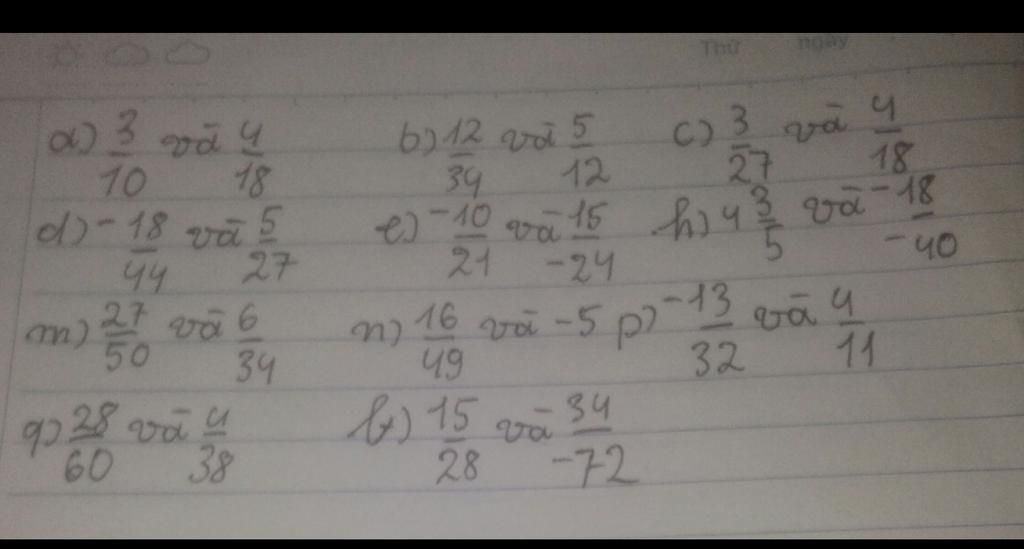 Thứ ngày
a) 3/10 và 4/18 b) 12/34 và 5/12 c) 3/27 và 4/18
d) -18/44 và 5/27 e) -10/21 và 15/-24 h) 4 3/5 và -18/-40
m) 27/50 và 6/34 n) 16/49 và -5 p) -13/32 và 4/11
q) 28/60 và 4/38 t) 15/28 và 34/-72